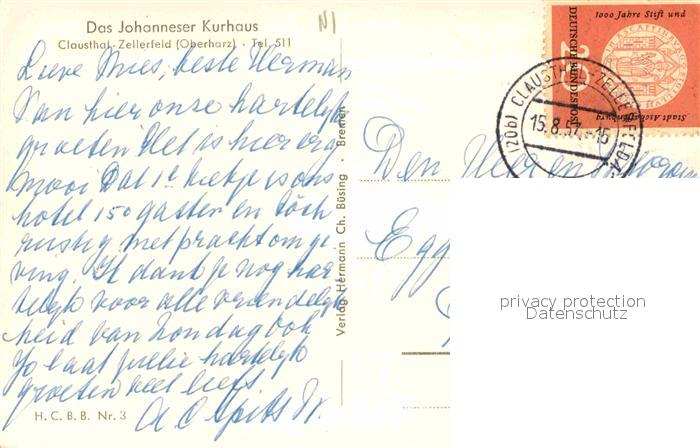 Das Johanneser Kurhaus
Clausthal-Zellerfeld (Oberharz) · Tel. 511
Lieve Mies, beste Herman
Van hier onze hartelijke
groeten Het is hier erg
mooi Dat 1e kiekje is ons
hotel 150 gasten en tòch
rustig met pracht omge-
ving. Ik dank je nog har
telijk voor alle vriendelijk
heid van Zondag ook
Jo laat jullie hartelijk
groeten veel liefs
H. C. B. B. Nr. 3
Verlag Hermann Ch. Büsing · Bremen
1000 Jahre Stift und
Stadt Aschaffenburg
DEUTSCHE BUNDESPOST
(20b) CLAUSTHAL-ZELLERFELD
15.8.57.-15
Den Heer en
Egg
privacy protection
Datenschutz